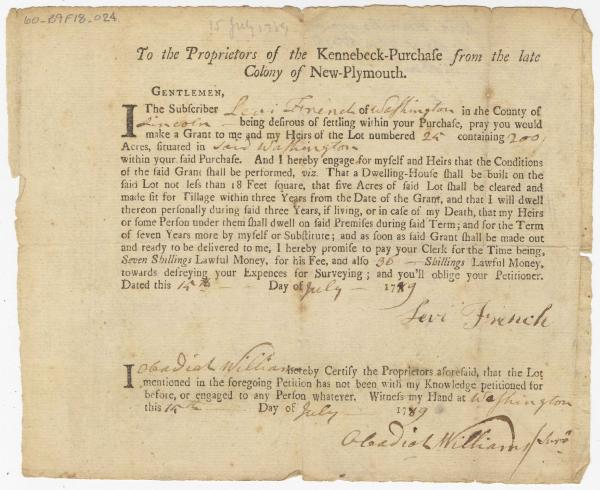 60-B9F18-024
15 July 1789
To the Proprietors of the Kennebeck-Purchaſe from the late
Colony of New-Plymouth.
GENTLEMEN,
I The Subſcriber Levi French of Waſhington in the County of
Lincoln being deſirous of ſettling within your Purchaſe, pray you would
make a Grant to me and my Heirs of the Lot numbered 25 containing 200
Acres, ſituated in Said Waſhington
within your ſaid Purchaſe. And I hereby engage for myſelf and Heirs that the Conditions
of the ſaid Grant ſhall be performed, viz. That a Dwelling-Houſe ſhall be built on the
ſaid Lot not leſs than 18 Feet ſquare, that five Acres of ſaid Lot ſhall be cleared and
made fit for Tillage within three Years from the Date of the Grant, and that I will dwell
thereon perſonally during ſaid three Years, if living, or in caſe of my Death, that my Heirs
or ſome Perſon under them ſhall dwell on ſaid Premiſes during ſaid Term; and for the Term
of ſeven Years more by myſelf or Subſtitute; and as ſoon as ſaid Grant ſhall be made out
and ready to be delivered to me, I hereby promiſe to pay your Clerk for the Time being,
Seven Shillings Lawful Money, for his Fee, and alſo 30 Shillings Lawful Money,
towards defreying your Expences for Surveying; and you'll oblige your Petitioner.
Dated this 15th Day of July 1789
Levi French
I Obadiah Williams hereby Certify the Proprietors aforeſaid, that the Lot
mentioned in the foregoing Petition has not been with my Knowledge petitioned for
before, or engaged to any Perſon whatever. Witneſs my Hand at Waſhington
this 15th Day of July 1789
Obadiah Williams Survr